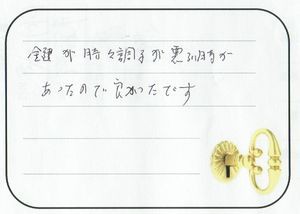 鍵が時々調子が悪い時が
あったので良かったです